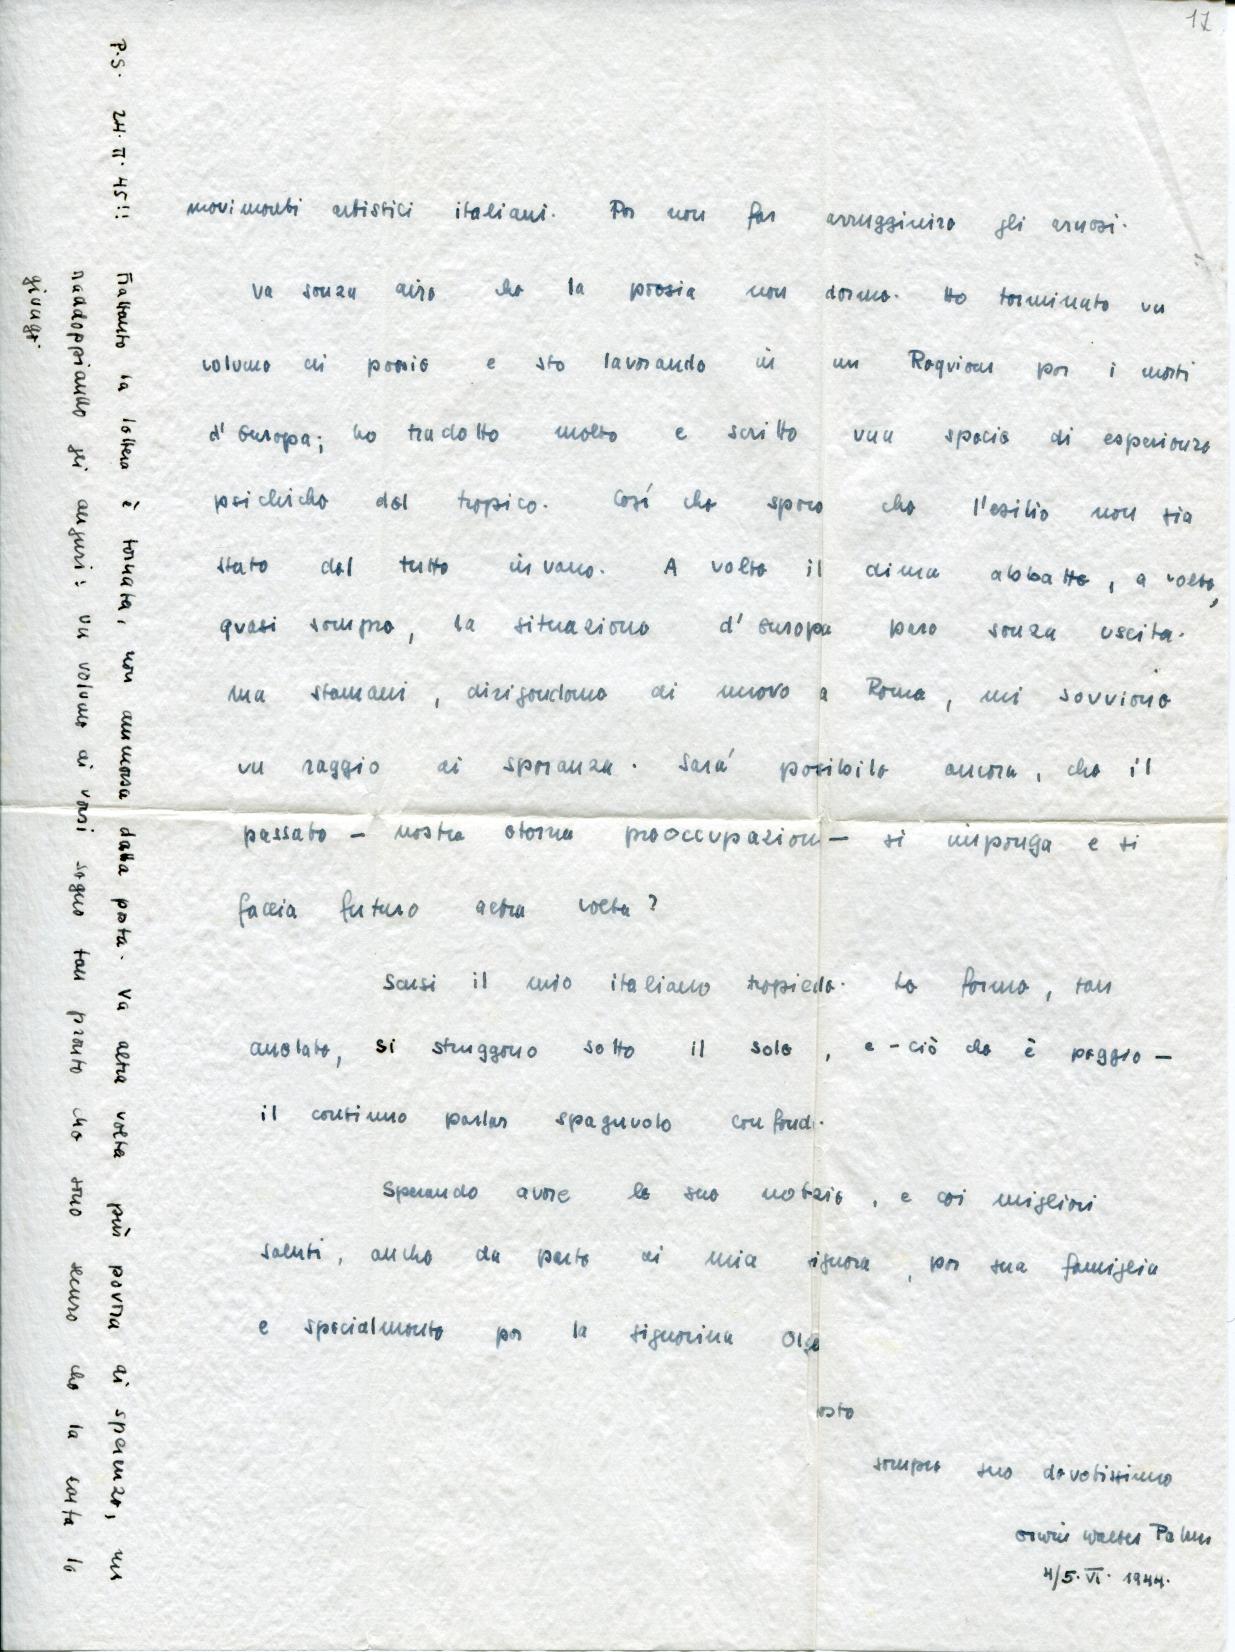 17
movimenti artistici italiani. Per non far arrugginire gli arnesi.
Va senza dire che la poesia non dorme. Ho terminato un
volume di poesie e sto lavorando in un Requiem per i morti
d'Europa; ho tradotto molto e scritto una specie di esperienze
psichiche del tropico. Cosí che spero che l'esilio non sia
stato del tutto invano. A volte il clima abbatte, a volte,
quasi sempre, la situazione d'Europa pare senza uscita.
ma stamani, dirigendome di nuovo a Roma, mi sovviene
un raggio di speranza. Sará possibile ancora, che il
passato – nostra eterna preoccupazione – si imponga e si
faccia futuro altra volta?
Scusi il mio italiano tropicale. Le forme, tan
anelate, si struggono sotto il sole, e – ciò che è peggio –
il continuo parlar spagnuolo confonde.
Sperando avere le sue notizie, e coi migliori
saluti, anche da parte di mia signora, per sua famiglia
e specialmente per la signorina Olga
resto
sempre suo devotissimo
Erwin Walter Palm
4/5. VI. 1944.
P.S. 24. II. 45!! Frattanto la lettera è tornata, non ammessa dalla posta. Va altra volta più povera di speranze, ma
raddoppiando gli auguri: un volume di versi segue tan pronto che sono securo che la carta le
giunge.